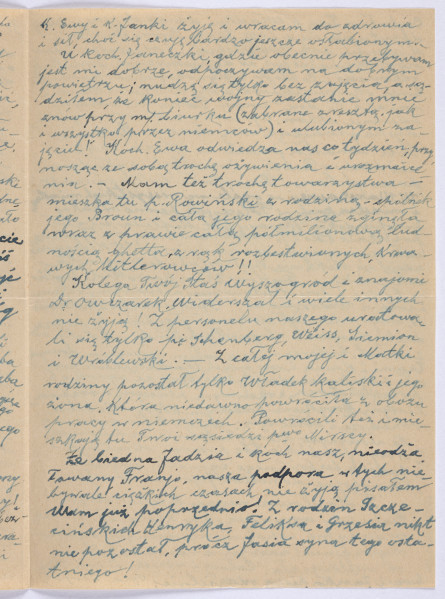 K. Ewy i K. Janki żyję i wracam do zdrowia
i sił, choć się czuję bardzo jeszcze osłabionym. —
U Koch. Janeczki, gdzie obecnie przebywam
jest mi dobrze, odpoczywam na dobrym
powietrzu; nudzę się tylko bez zajęcia, a są-
dziłem, że koniec wojny zastanie mnie
znów przy m. biurku (zabrane zresztą, jak
i wszystko przez niemców) i ulubionym za
jęciu! Koch. Ewa odwiedza nas co tydzień, przy
nosząc ze sobą trochę ożywienia i urozmaice
nia. — Mam też trochę towarzystwa —
mieszka tu p. Rowiński z rodziną — spólnik
jego Broun i cała jego rodzina zginęła
wraz z prawie całą półmilionową lud
nością ghetta, z rąk rozbestwionych, krwa-
wych hitlerowców!!
Kolega Twój Staś Wyszogród i znajomi
Dr Owczarek, Widerszal i wiele innych
nie żyją! Z personelu naszego uratowa-
li się tylko pp. Schönberg, Weiss, Siemion
i Wróblewski. — Z całej mojej i Matki
rodziny pozostał tylko Władek Kaliski i jego
żona, która niedawno powróciła z obozu
pracy w niemczech. Powrócili też i mie-
szkają tu Twoi sąsiedzi pwo Mirscy.
Że biedna Jadzia i koch nasz, nieodża
łowany Franjo, nasza podpora w tych nie
bywale ciężkich czasach nie żyją pisałem
Wam już poprzednio! Z rodzin Szcze-
cińskich Henryka, Feliksa i Grzesia nikt
nie pozostał, prócz Jasia syna tego osta-
tniego!